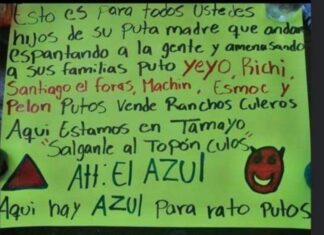 Esto es para todos Ustedes
hijos de su Puta madre que andan
espantando a la gente y amenasando
a sus familias Puto YEYO, Richi,
Santiago el foras, Machin, Esmoc y
Pelon Putos Vende Ranchos Culeros
Aqui Estamos en Tamayo
"Salganle al Topón Culos"
Att: El AZUL
Aqui hay AZUL Para rato Putos